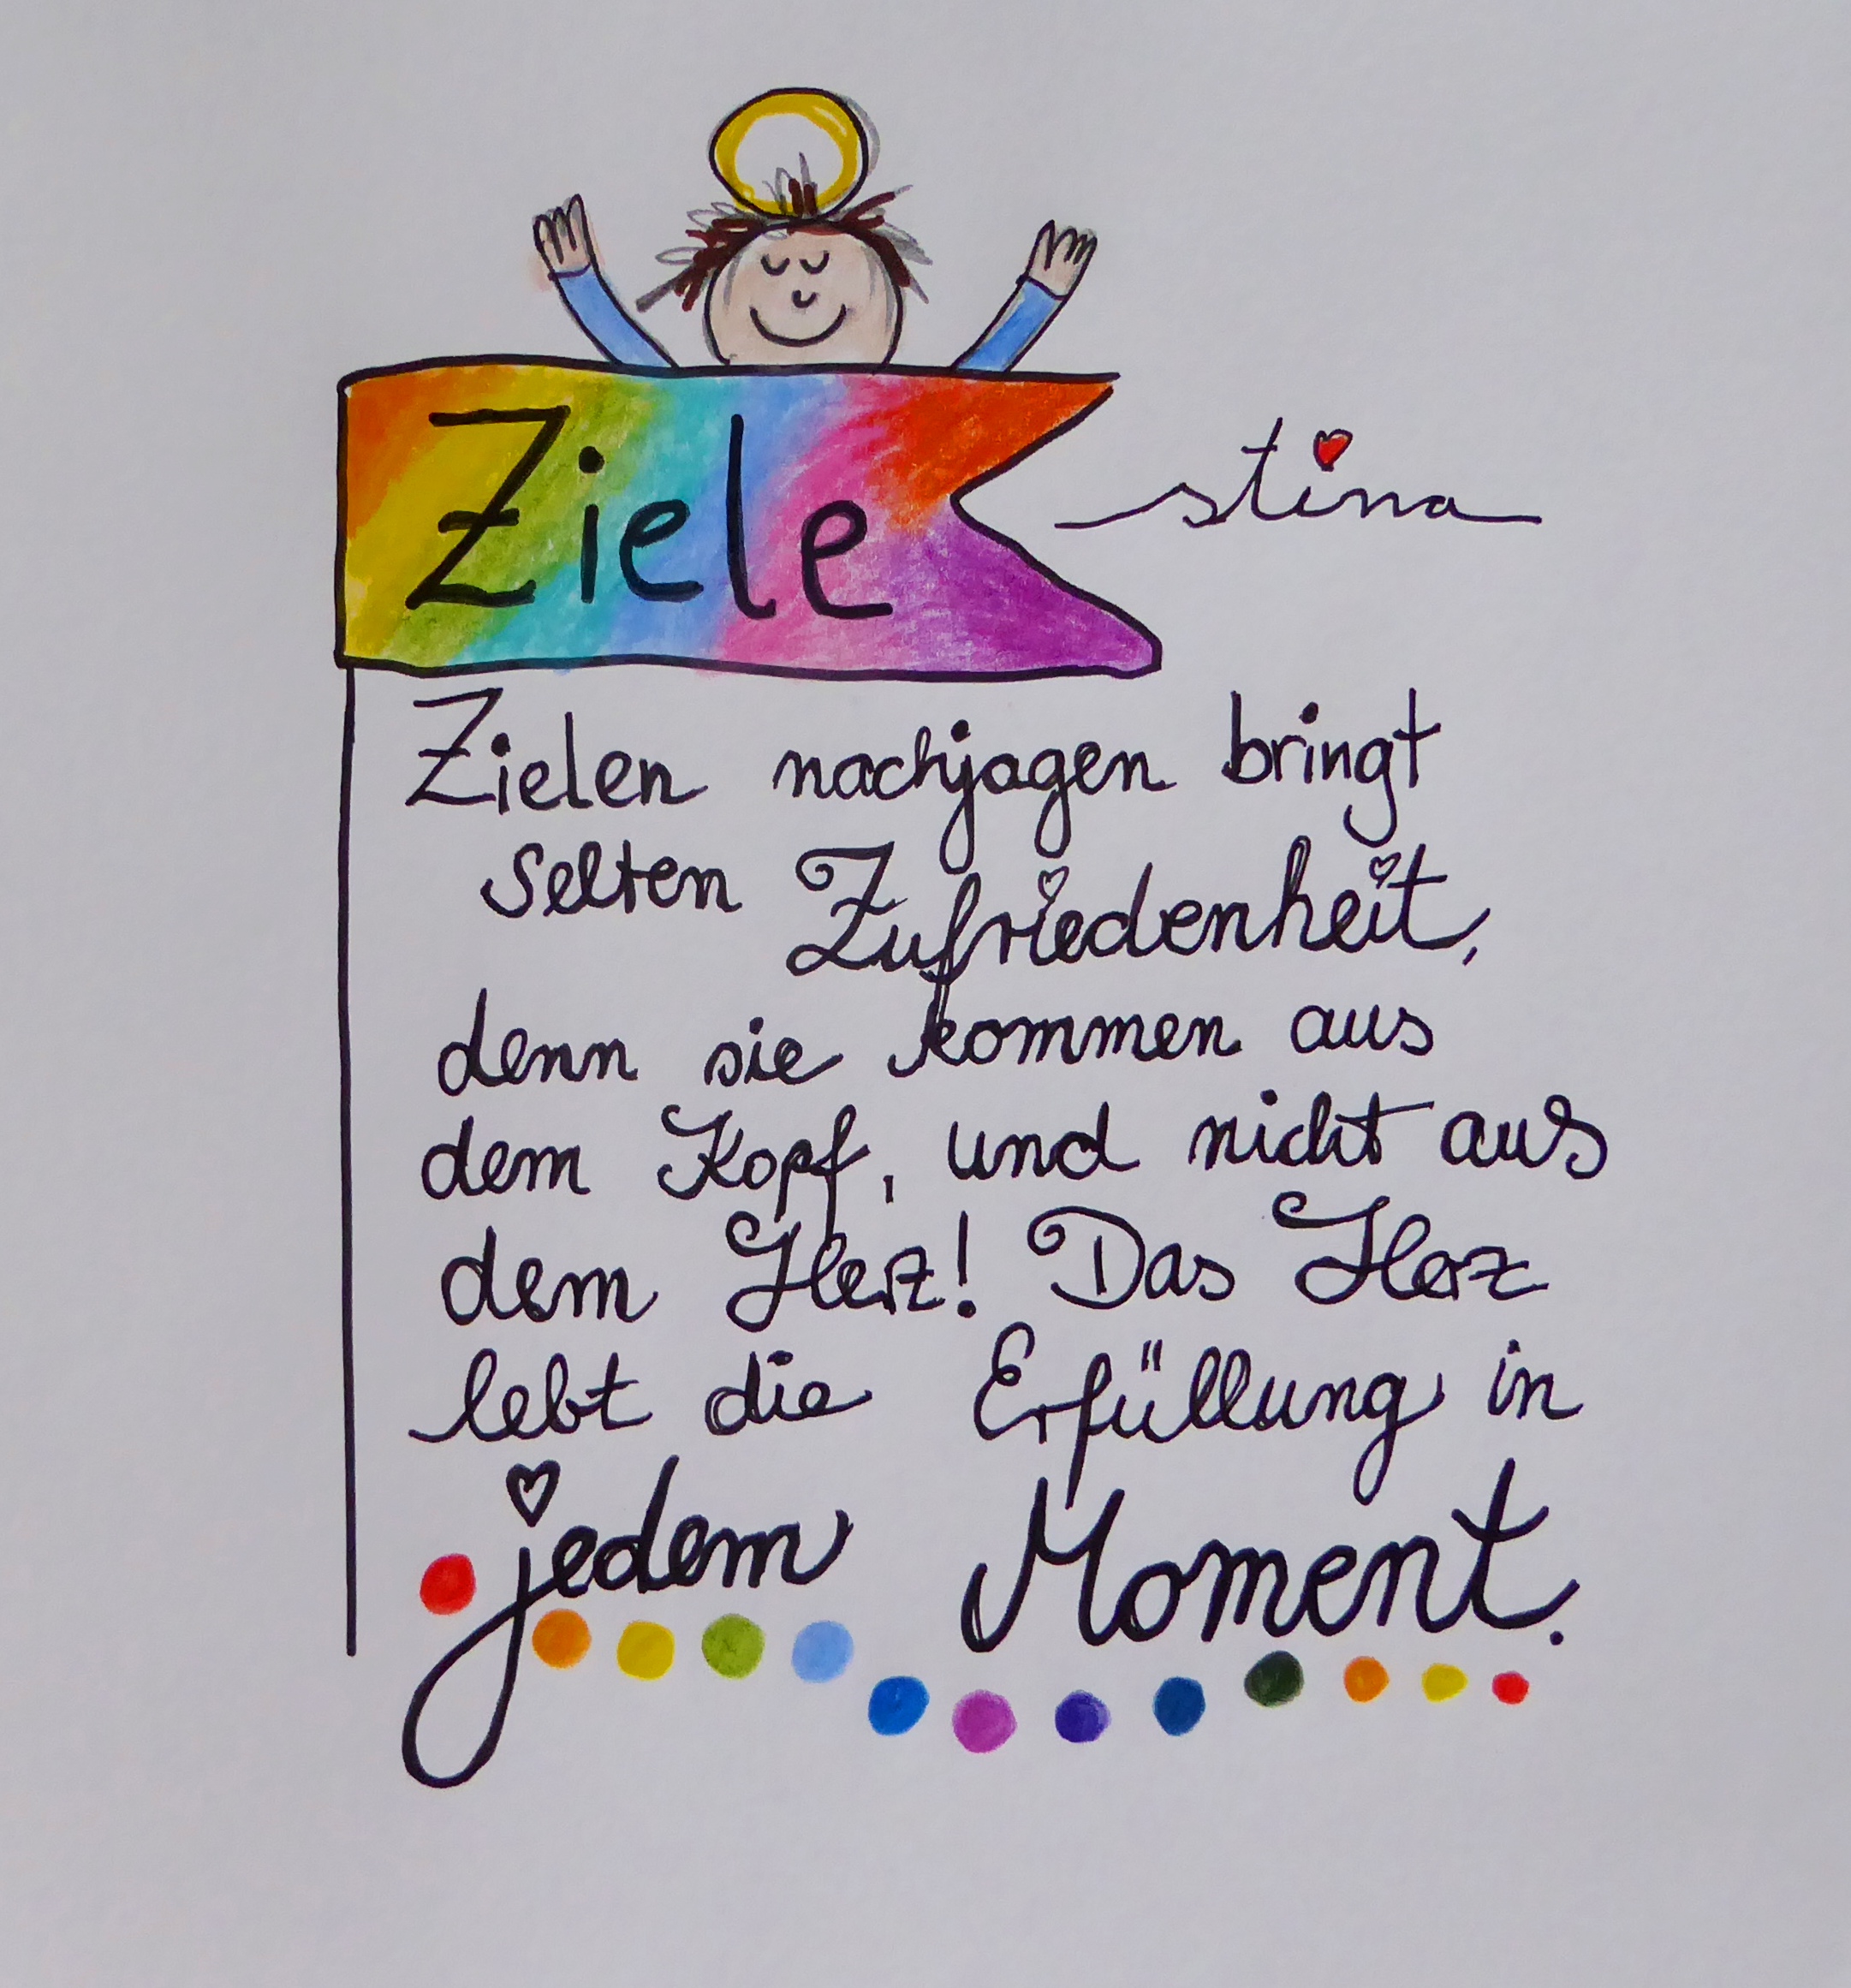 Ziele
stina
Zielen nachjagen bringt
selten Zufriedenheit,
denn sie kommen aus
dem Kopf, und nicht aus
dem Herz! Das Herz
lebt die Erfüllung in
jedem Moment.